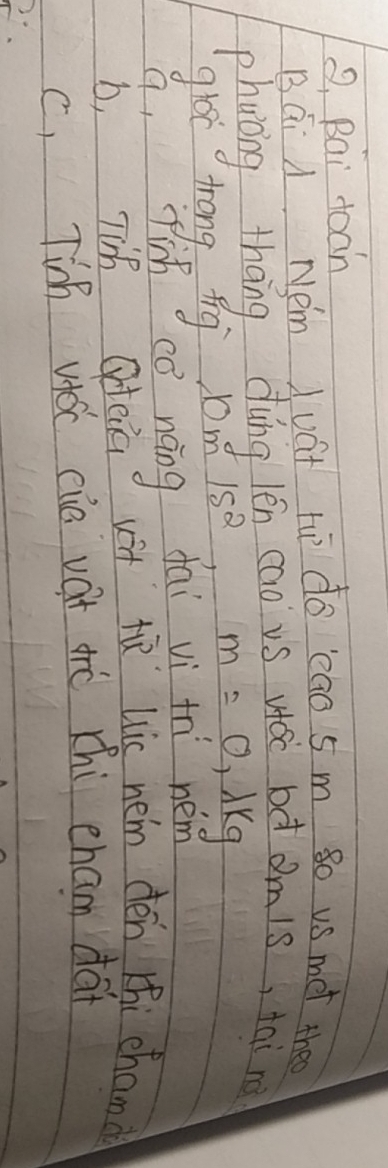 2, Bài toán
Bài 1. Ném 1 vật từ độ cao 5 m so vs mđ theo
phương thẳng đứng lên cao vs vtốc bđ 2m/s, tại
gtốc trọng trg 10m/s² , m = 0,1kg
a, tính cơ năng tại vị trí ném
b, Tính của vật từ lúc ném đến khi chạm
c, Tính vtốc của vật trc khi chạm đất